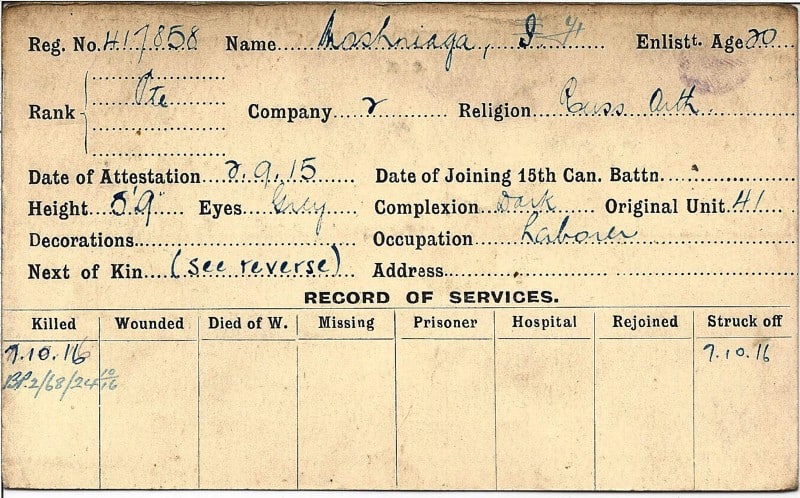 Reg. No. 417858 Name Moshniaga, I. Enlistt. Age 20
Rank Pte Company 2 Religion Russ Orth
Date of Attestation 2.9.15 Date of Joining 15th Can. Battn.
Height 5'9" Eyes Grey Complexion Dark Original Unit 41
Decorations Occupation Laborer
Next of Kin (see reverse) Address
RECORD OF SERVICES.
Killed Wounded Died of W. Missing Prisoner Hospital Rejoined Struck off
7.10.16 7.10.16